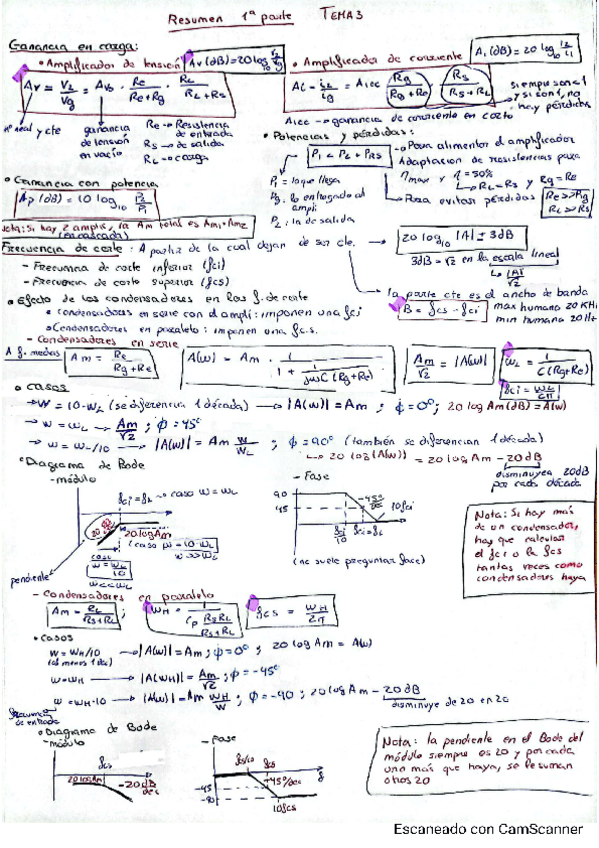 Resumen 1ª parte TEMA 3
Ganancia en carga:
• Amplificador de tensión Av (dB) = 20 log10 V2/Vg
Av = V2/Vg = Avo · Re/(Re+Rg) · RL/(RL+Rs)
nº real y cte
ganancia de tensión en vacío
Re → Resistencia de entrada
Rs → de salida
RL → carga
• Amplificador de corriente Ai (dB) = 20 log10 i2/i1
Ai = iL/ig = Aicc · Rg/(Rg+Re) · Rs/(Rs+RL)
siempre son < 1
y si son 1, no
hay pérdidas
Aicc → ganancia de corriente en corto
• Potencias y pérdidas:
P1 < PL + PRs
Para alimentar el amplificador
Adaptacion de resistencias para
ηmax η = 50%
RL = Rs y Rg = Re
Para evitar pérdidas Re >> Rg
RL >> Rs
P1 = lo que llega
Pg: lo entregado al ampli
PL: la de salida
• Ganancia con potencia
Ap (dB) = 10 log10 P2/P1
Nota: Si hay 2 amplis, la Am total es Am1 · Am2
(en cascada)
Frecuencia de corte: A partir de la cual dejan de ser cte.
20 log10 |A| ± 3dB
3dB = √2 en la escala lineal
|A|/√2
- Frecuencia de corte inferior (fci)
- Frecuencia de corte superior (fcs)
la parte cte es el ancho de banda
B = fcs - fci
max humano 20 KHz
min humano 20 Hz
• Efecto de los condensadores en las f. de corte
• condensadores en serie con el ampli: imponen una fci
• Condensadores en paralelo: imponen una f.c.s.
- Condensadores en serie
A f. medias
Am = Re/(Rg+Re)
A(w) = Am · 1/(1 + 1/(jwC(Rg+Re)))
Am/√2 = |A(w)|
wL = 1/(C(Rg+Re))
fci = wL/2π
• casos
→ w = 10·wL (se diferencia 1 década) → |A(w)| = Am ; ϕ = 0° ; 20 log Am (dB) = A(w)
→ w = wL → Am/√2 ; ϕ = 45°
→ w = wL/10 → |A(w)| = Am w/wL ; ϕ = 90° (también se diferencian 1 década)
→ 20 log (A(w)) = 20 log Am - 20dB
disminuye a 20dB
por cada década
• Diagrama de Bode
- módulo
fci = fL → caso w = wL
20 log Am
(caso w = 10·wL
w >> wL)
caso
w = wL/10
w << wL
pendiente
- Fase
90
45
-45°/dec
fci/10
fci = fL
10fci
(no suele preguntar fase)
Nota: Si hay más
de un condensador,
hay que calcular
el fci o la fcs
tantas veces como
condensadores haya
- Condensadores en paralelo
Am = RL/(Rs+RL) ; wH = 1/(Cp RsRL/(Rs+RL)) fcs = wH/2π
• Casos
w = wH/10 → |A(w)| = Am ; ϕ = 0° ; 20 log Am = A(w)
(al menos 1 dec)
w = wH → |A(wH)| = Am/√2 ; ϕ = -45°
w = wH·10 → |A(w)| = Am wH/w ; ϕ = -90 ; 20 log Am - 20dB
disminuye de 20 en 20
frecuencia
de entrada
• Diagrama de Bode
- módulo
fcs
20 log Am
-20dB/dec
- Fase
fcs/10
fcs
f
-45
-90
-45°/dec
10fcs
Nota: la pendiente en el Bode del
módulo siempre es 20 y por cada
uno más que haya, se le suman
otros 20
Escaneado con CamScanner